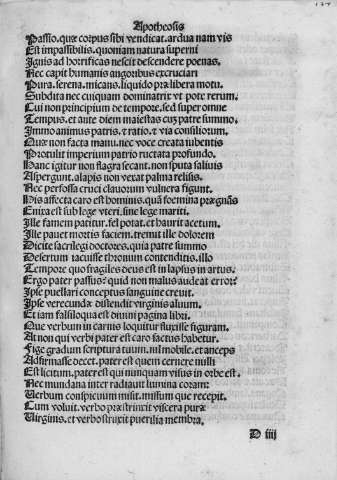 Apotheosis
Passio, quæ corpus sibi vendicat. ardua nam vis
Est impassibilis. quoniam natura superni
Ignis ad horrificas nescit descendere poenas.
Nec capit humanis angoribus excruciari
Pura. serena. micans. liquido præ libera motu.
Subdita nec cuiquam dominatrix vt pote rerum.
Cui non principium de tempore. sed super omne
Tempus. et ante diem maiestas cum patre summo.
Immo animus patris. et ratio. et via consiliorum.
Quæ non facta manu. nec voce creata iubentis
Protulit imperium patrio ructata profundo.
Hanc igitur non flagra secant. non sputa saliuis
Aspergunt. alapis non vexat palma relisis.
Nec perfossa cruci clauorum vulnera figunt.
His affecta caro est hominis. quã foemina prægnãs
Enixa est sub lege vteri. sine lege mariti.
Ille famem patitur. fel potat. et haurit acetum.
Ille pauet mortis faciem. tremit ille dolorem
Dicite sacrilegi doctores. quia patre summo
Desertum iacuisse thronum contenditis. illo
Tempore quo fragiles deus est in lapsus in artus.
Ergo pater passus? quid non malus audeat error?
Ipse puellari conceptus sanguine creuit.
Ipse verecundæ distendit virginis aluum.
Et iam falsiloqua est diuini pagina libri.
Que verbum in carnis loquitur fluxisse figuram.
At non qui verbi pater est caro factus habetur.
Fige gradum scriptura tuum. nil mobile. et anceps
Adfirmasse decet. pater est quem cernere nulli
Est licitum. pater est qui nunquam visus in orbe est.
Nec mundana inter radiauit lumina coram:
Verbum conspicuum misit. missum que recepit.
Cum voluit. verbo præstrinxit viscera puræ
Virginis. et verbo struxit puerilia membra.
D iiij